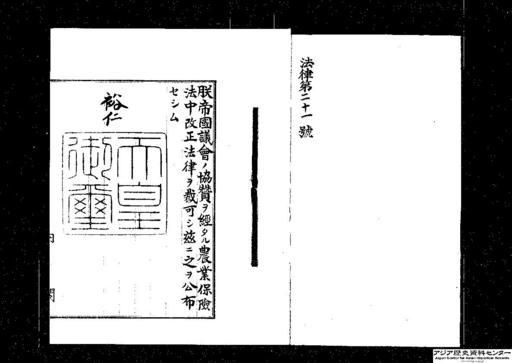 法律第二十一號
朕帝國議會ノ協贊ヲ經タル農業保險
法中改正法律ヲ裁可シ茲ニ之ヲ公布
セシム
裕仁
天皇
御璽
内
閣
アジア歴史資料センター
Japan Center for Asian Historical Records